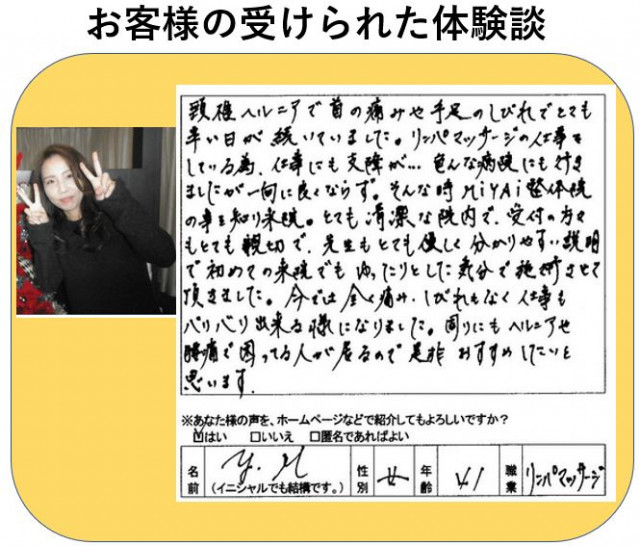 お客様の受けられた体験談
頸椎ヘルニアで首の痛みや手足のしびれでとても
辛い日が続いていました。リンパマッサージの仕事を
している為、仕事にも支障が… 色んな病院にも行き
ましたが一向に良くならず。そんな時MiYAi整体院
の事を知り来院。とても清潔な院内で、受付の方々
もとても親切で、先生もとても優しく分かりやすい説明
で初めての来院でもゆったりとした気分で施術させて
頂きました。今では全く痛み、しびれもなく仕事も
バリバリ出来る様になりました。周りにもヘルニアや
腰痛で困ってる人が居るので是非おすすめしたいと
思います。
※あなた様の声を、ホームページなどで紹介してもよろしいですか?
☑はい □いいえ □匿名であればよい
名前 Y.M (イニシャルでも結構です。) 性別 女 年齢 41 職業 リンパマッサージ